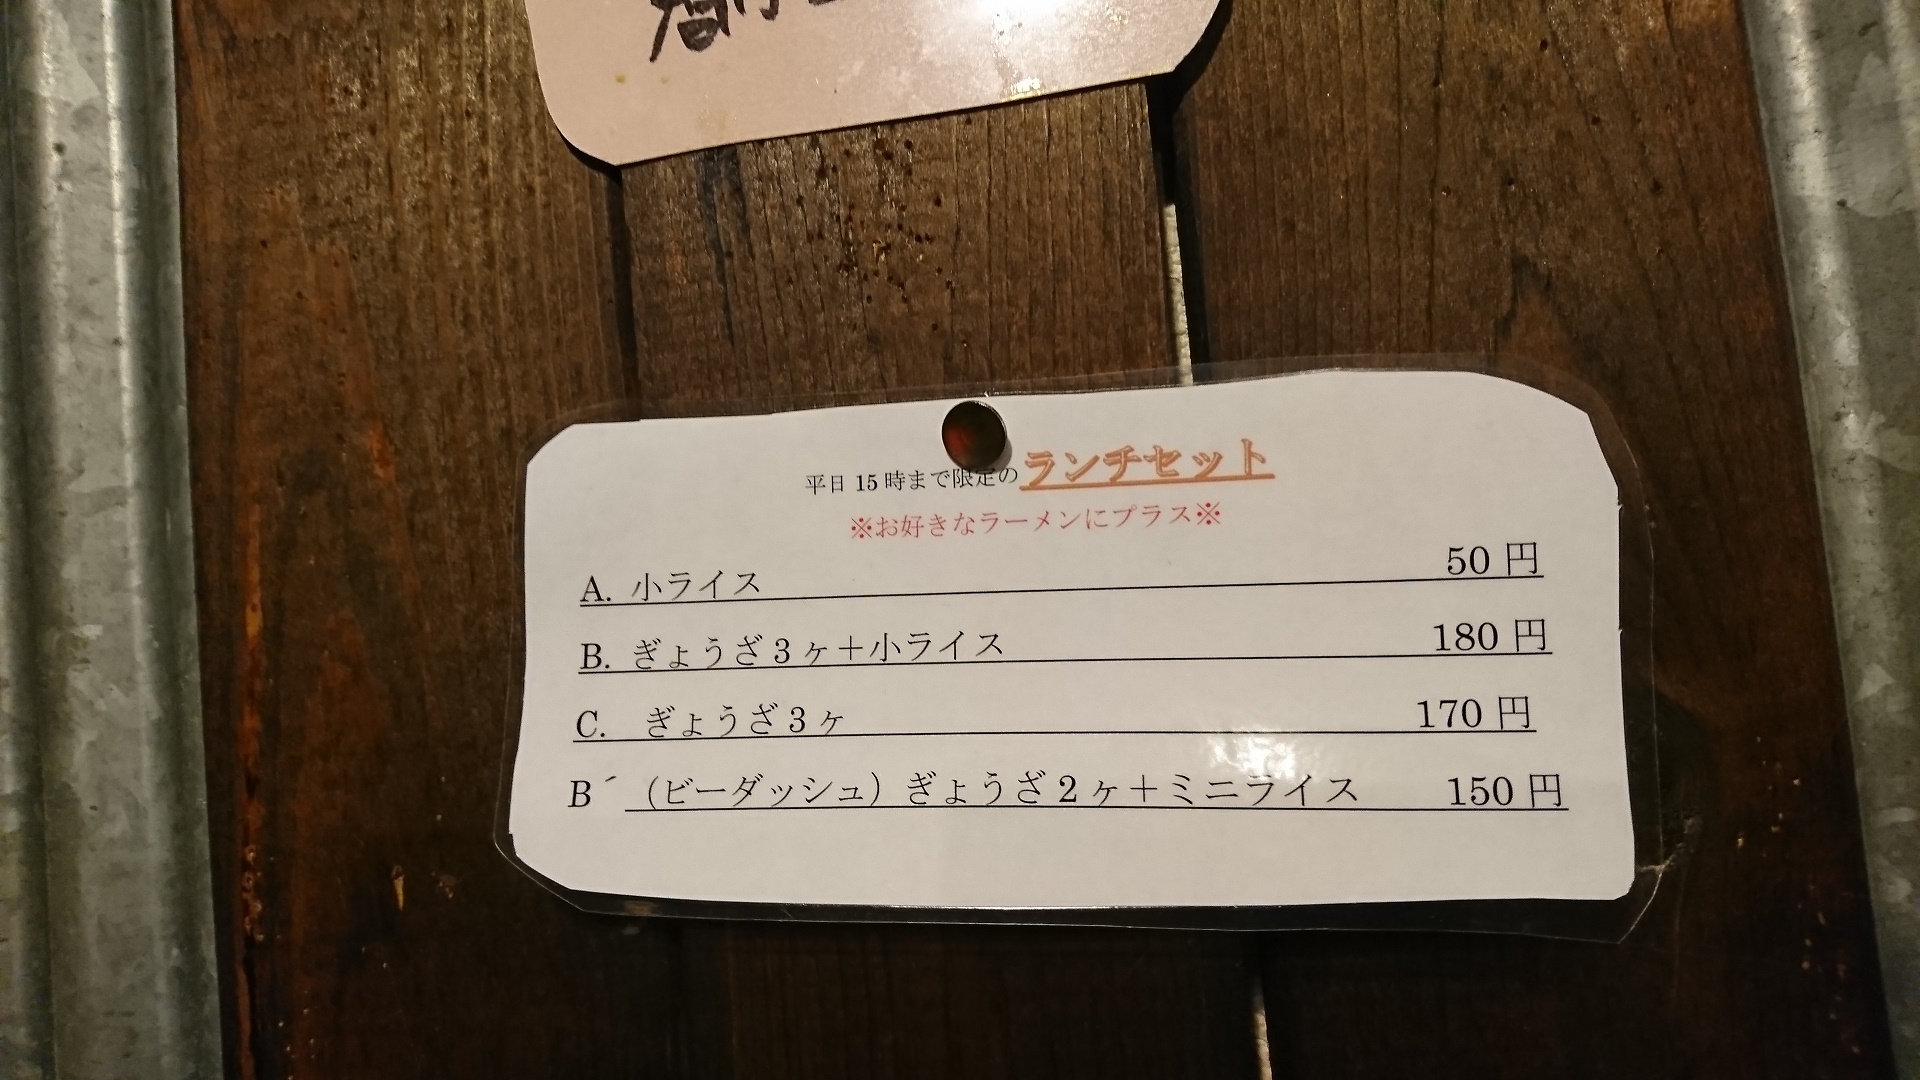 平日 15 時まで限定のランチセット
※お好きなラーメンにプラス※
A. 小ライス 50 円
B. ぎょうざ 3 ヶ＋小ライス 180 円
C. ぎょうざ 3 ヶ 170 円
B´（ビーダッシュ）ぎょうざ 2 ヶ＋ミニライス 150 円